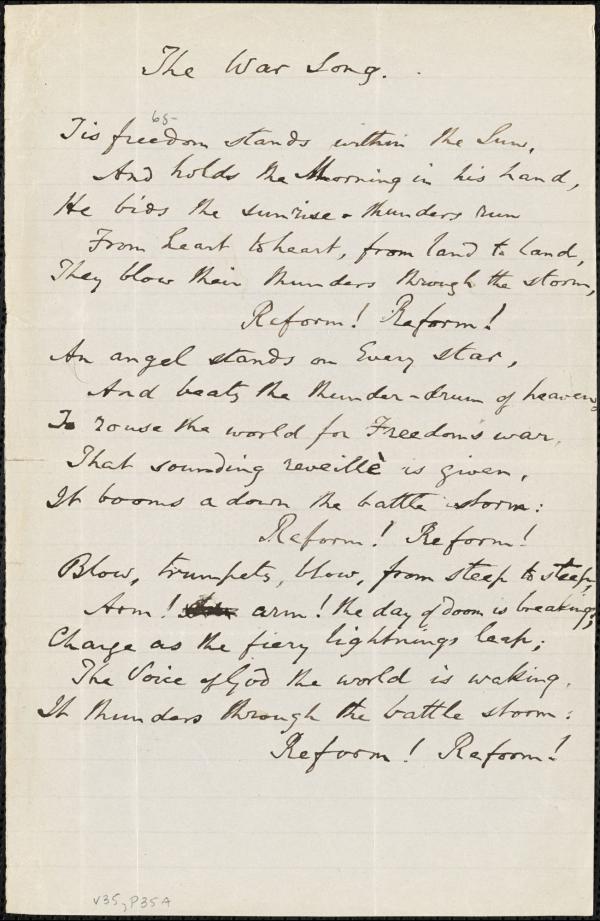 The War Song.
65-
Tis freedom stands within the Sun,
And holds the Morning in his hand,
He bids the sunrise-thunders run
From heart to heart, from land to land,
They blow their thunders through the storm,
Reform! Reform!
An angel stands on Every star,
And beats the thunder-drum of heaven,
To rouse the world for Freedom's war,
That sounding reveillè is given,
It booms adown the battle storm:
Reform! Reform!
Blow, trumpets, blow, from steep to steep,
Arm! arm! the day of doom is breaking;
Charge as the fiery lightnings leap;
The Voice of God the world is waking.
It thunders through the battle storm:
Reform! Reform!
v35,P35A